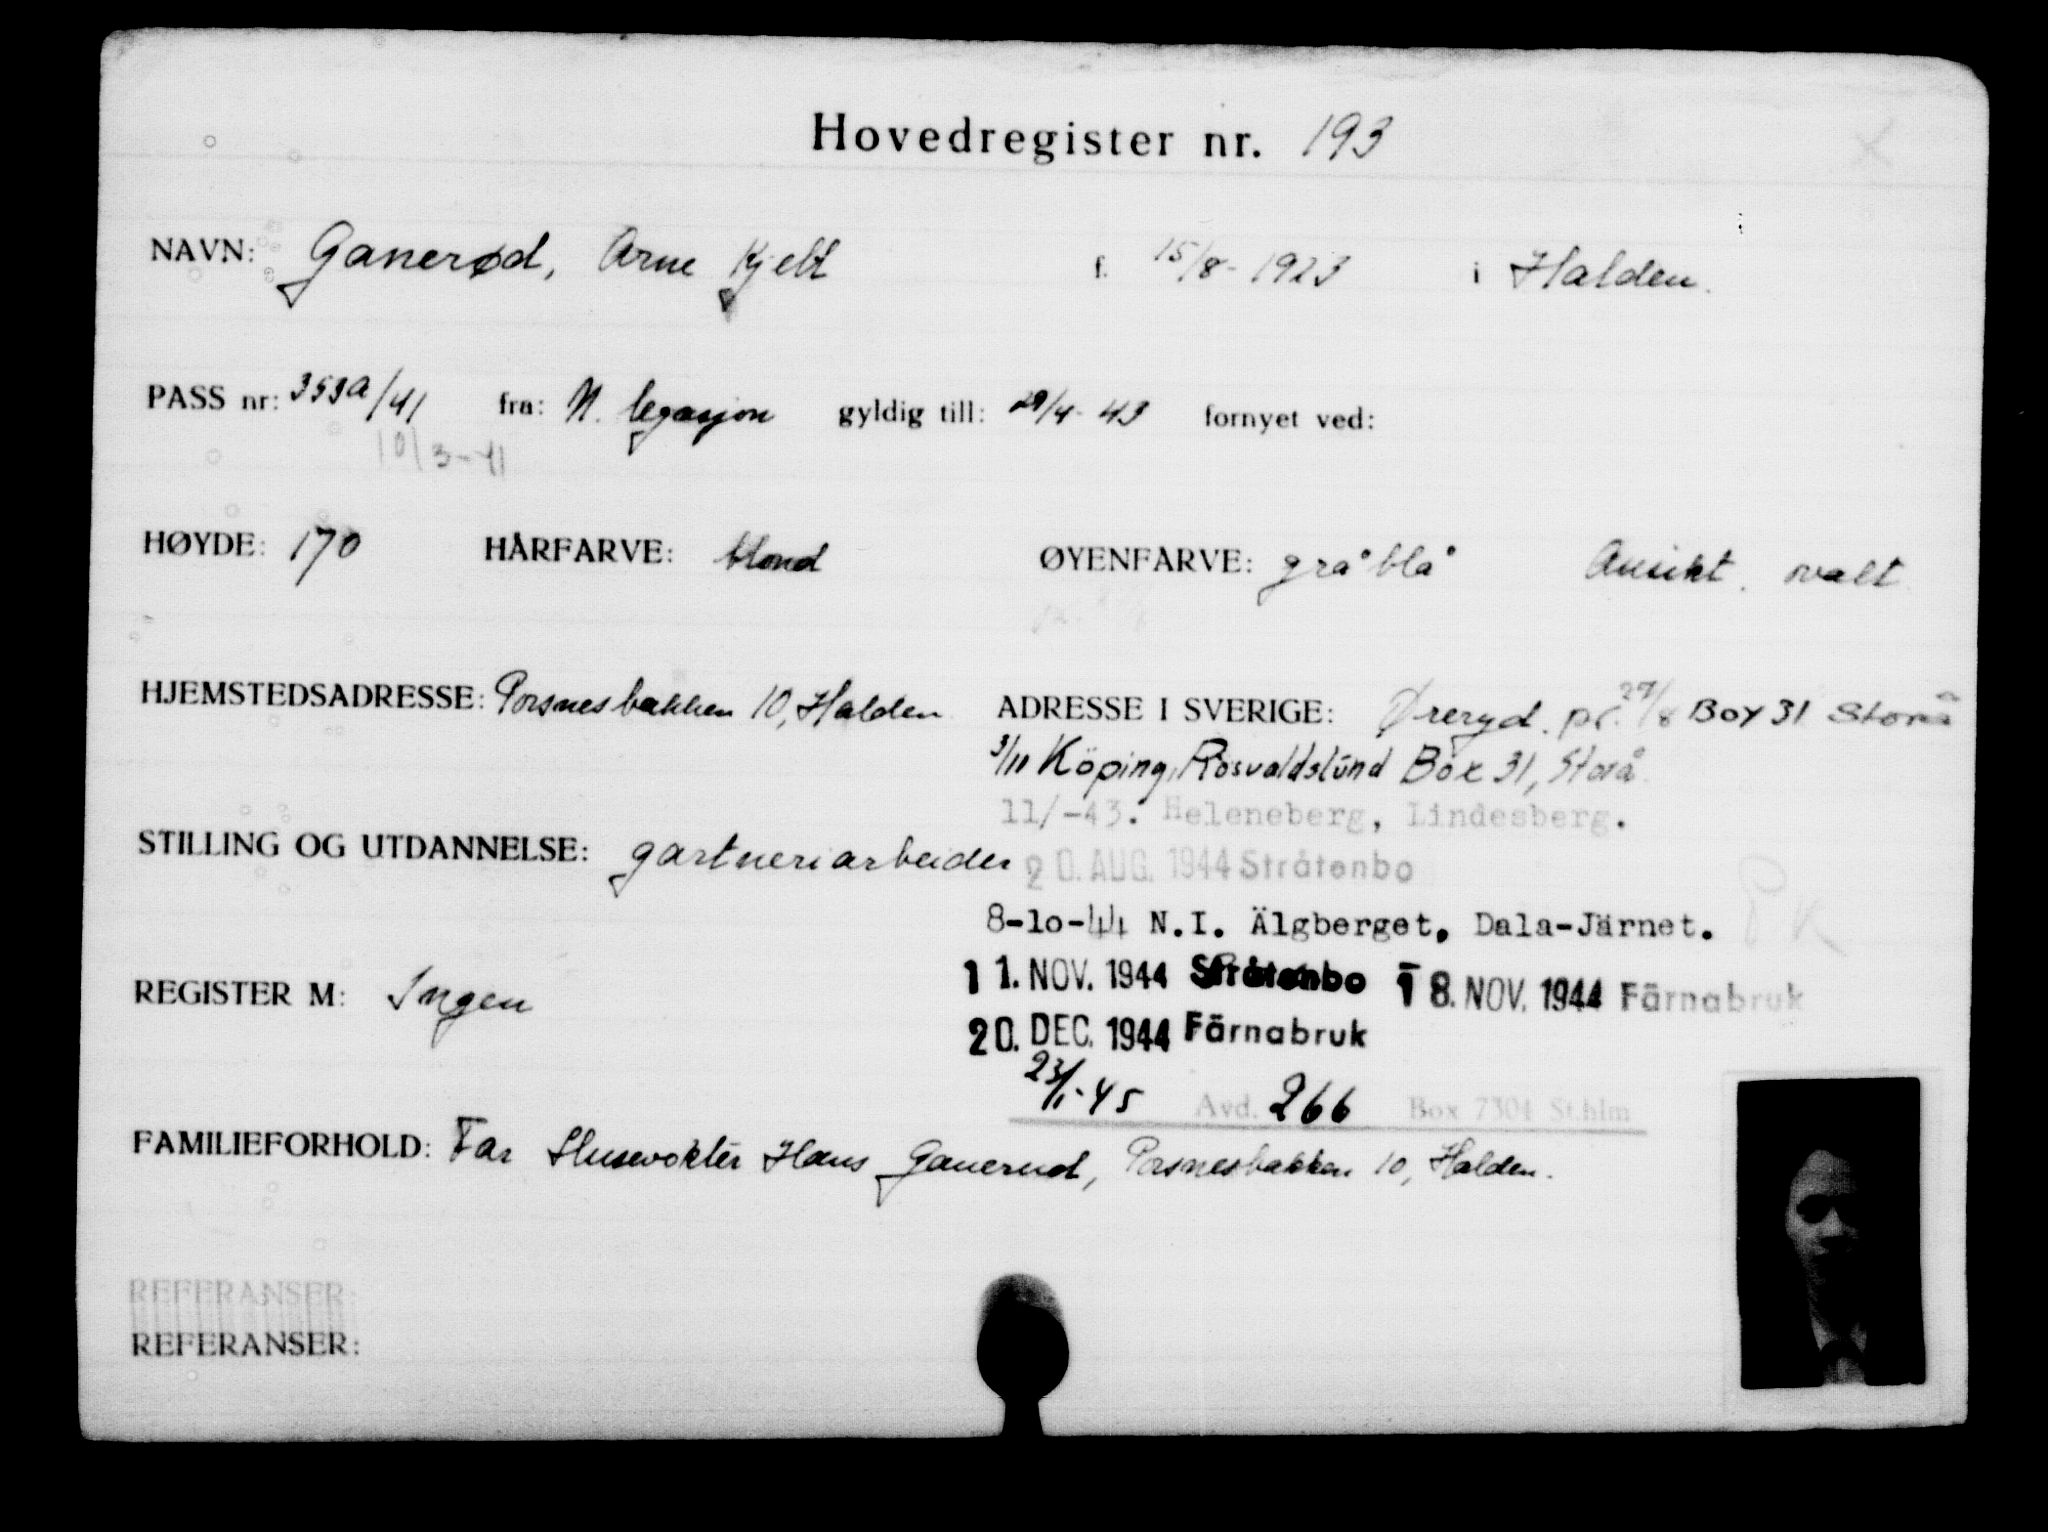 Hovedregister nr. 193
NAVN: Ganerød, Arne Kjell f. 15/8-1923 i Halden.
PASS nr: 353a/41 fra: N. legasjon gyldig till: 29/4-43 fornyet ved:
10/3-41
HØYDE: 170 HÅRFARVE: blond ØYENFARVE: gråblå Ansikt. ovalt
HJEMSTEDSADRESSE: Porsnesbakken 10, Halden ADRESSE I SVERIGE: Øreryd. pr. 27/8 Box 31 Storå
3/11 Köping, Rosvaldslund Box 31, Storå
11/-43. Heleneberg, Lindesberg.
STILLING OG UTDANNELSE: gartneriarbeider
20. AUG. 1944 Stråtenbo
8-10-44 N.I. Älgberget, Dala-Järnet. PK
REGISTER M: Ingen
11. NOV. 1944 Stråtenbo 18. NOV. 1944 Färnabruk
20. DEC. 1944 Färnabruk
23/1-45 Avd. 266 Box 7304 St.hlm
FAMILIEFORHOLD: Far Husevokter Hans Ganerud, Porsnesbakken 10, Halden.
REFERANSER:
REFERANSER: